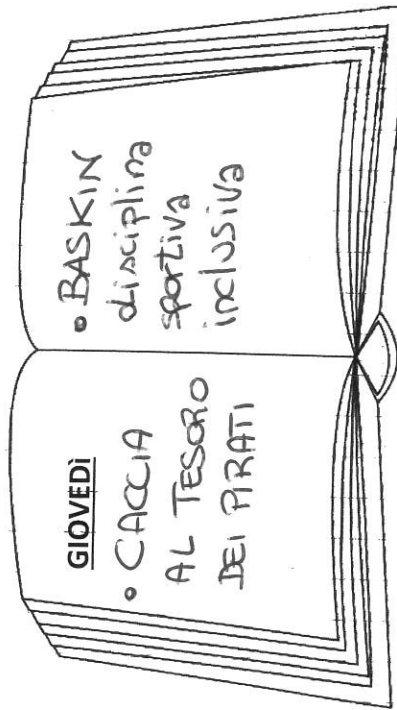 GIOVEDÌ
• CACCIA
AL TESORO
DEI PIRATI
• BASKIN
disciplina
sportiva
inclusiva